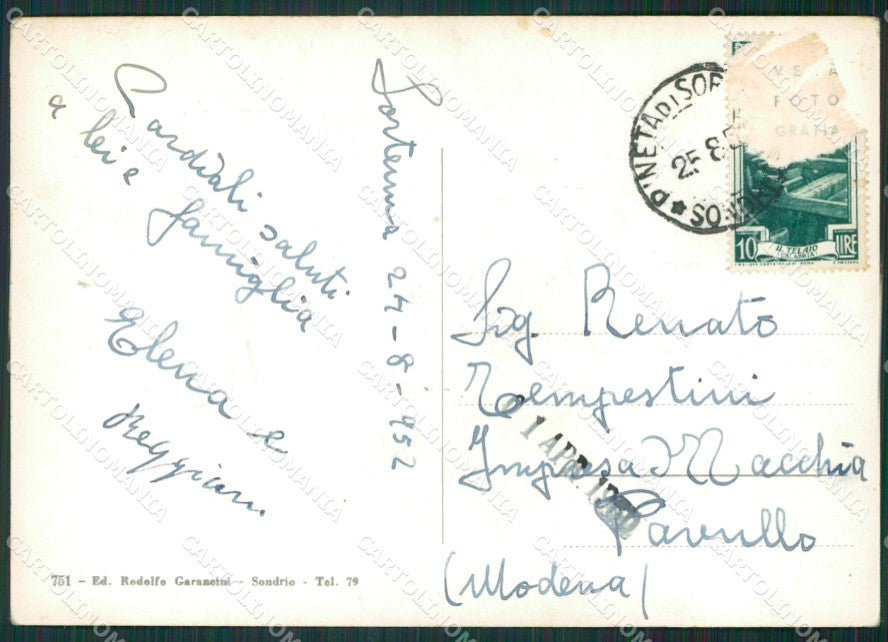 Cordiali saluti
a lei e famiglia
Elena e
Sortenna 24-8-952
D'NETA DI SOR
25 8 5
SONDRI
VERA
FOTO
GRAFIA
10 IL TELAIO LIRE
(CALABRIA)
Sig. Renato
Tempestini
Impresa Macchia
Pavullo
(Modena)
1 APR.
751 - Ed. Rodolfo Garancini - Sondrio - Tel. 79
CARTOLINOMANIA